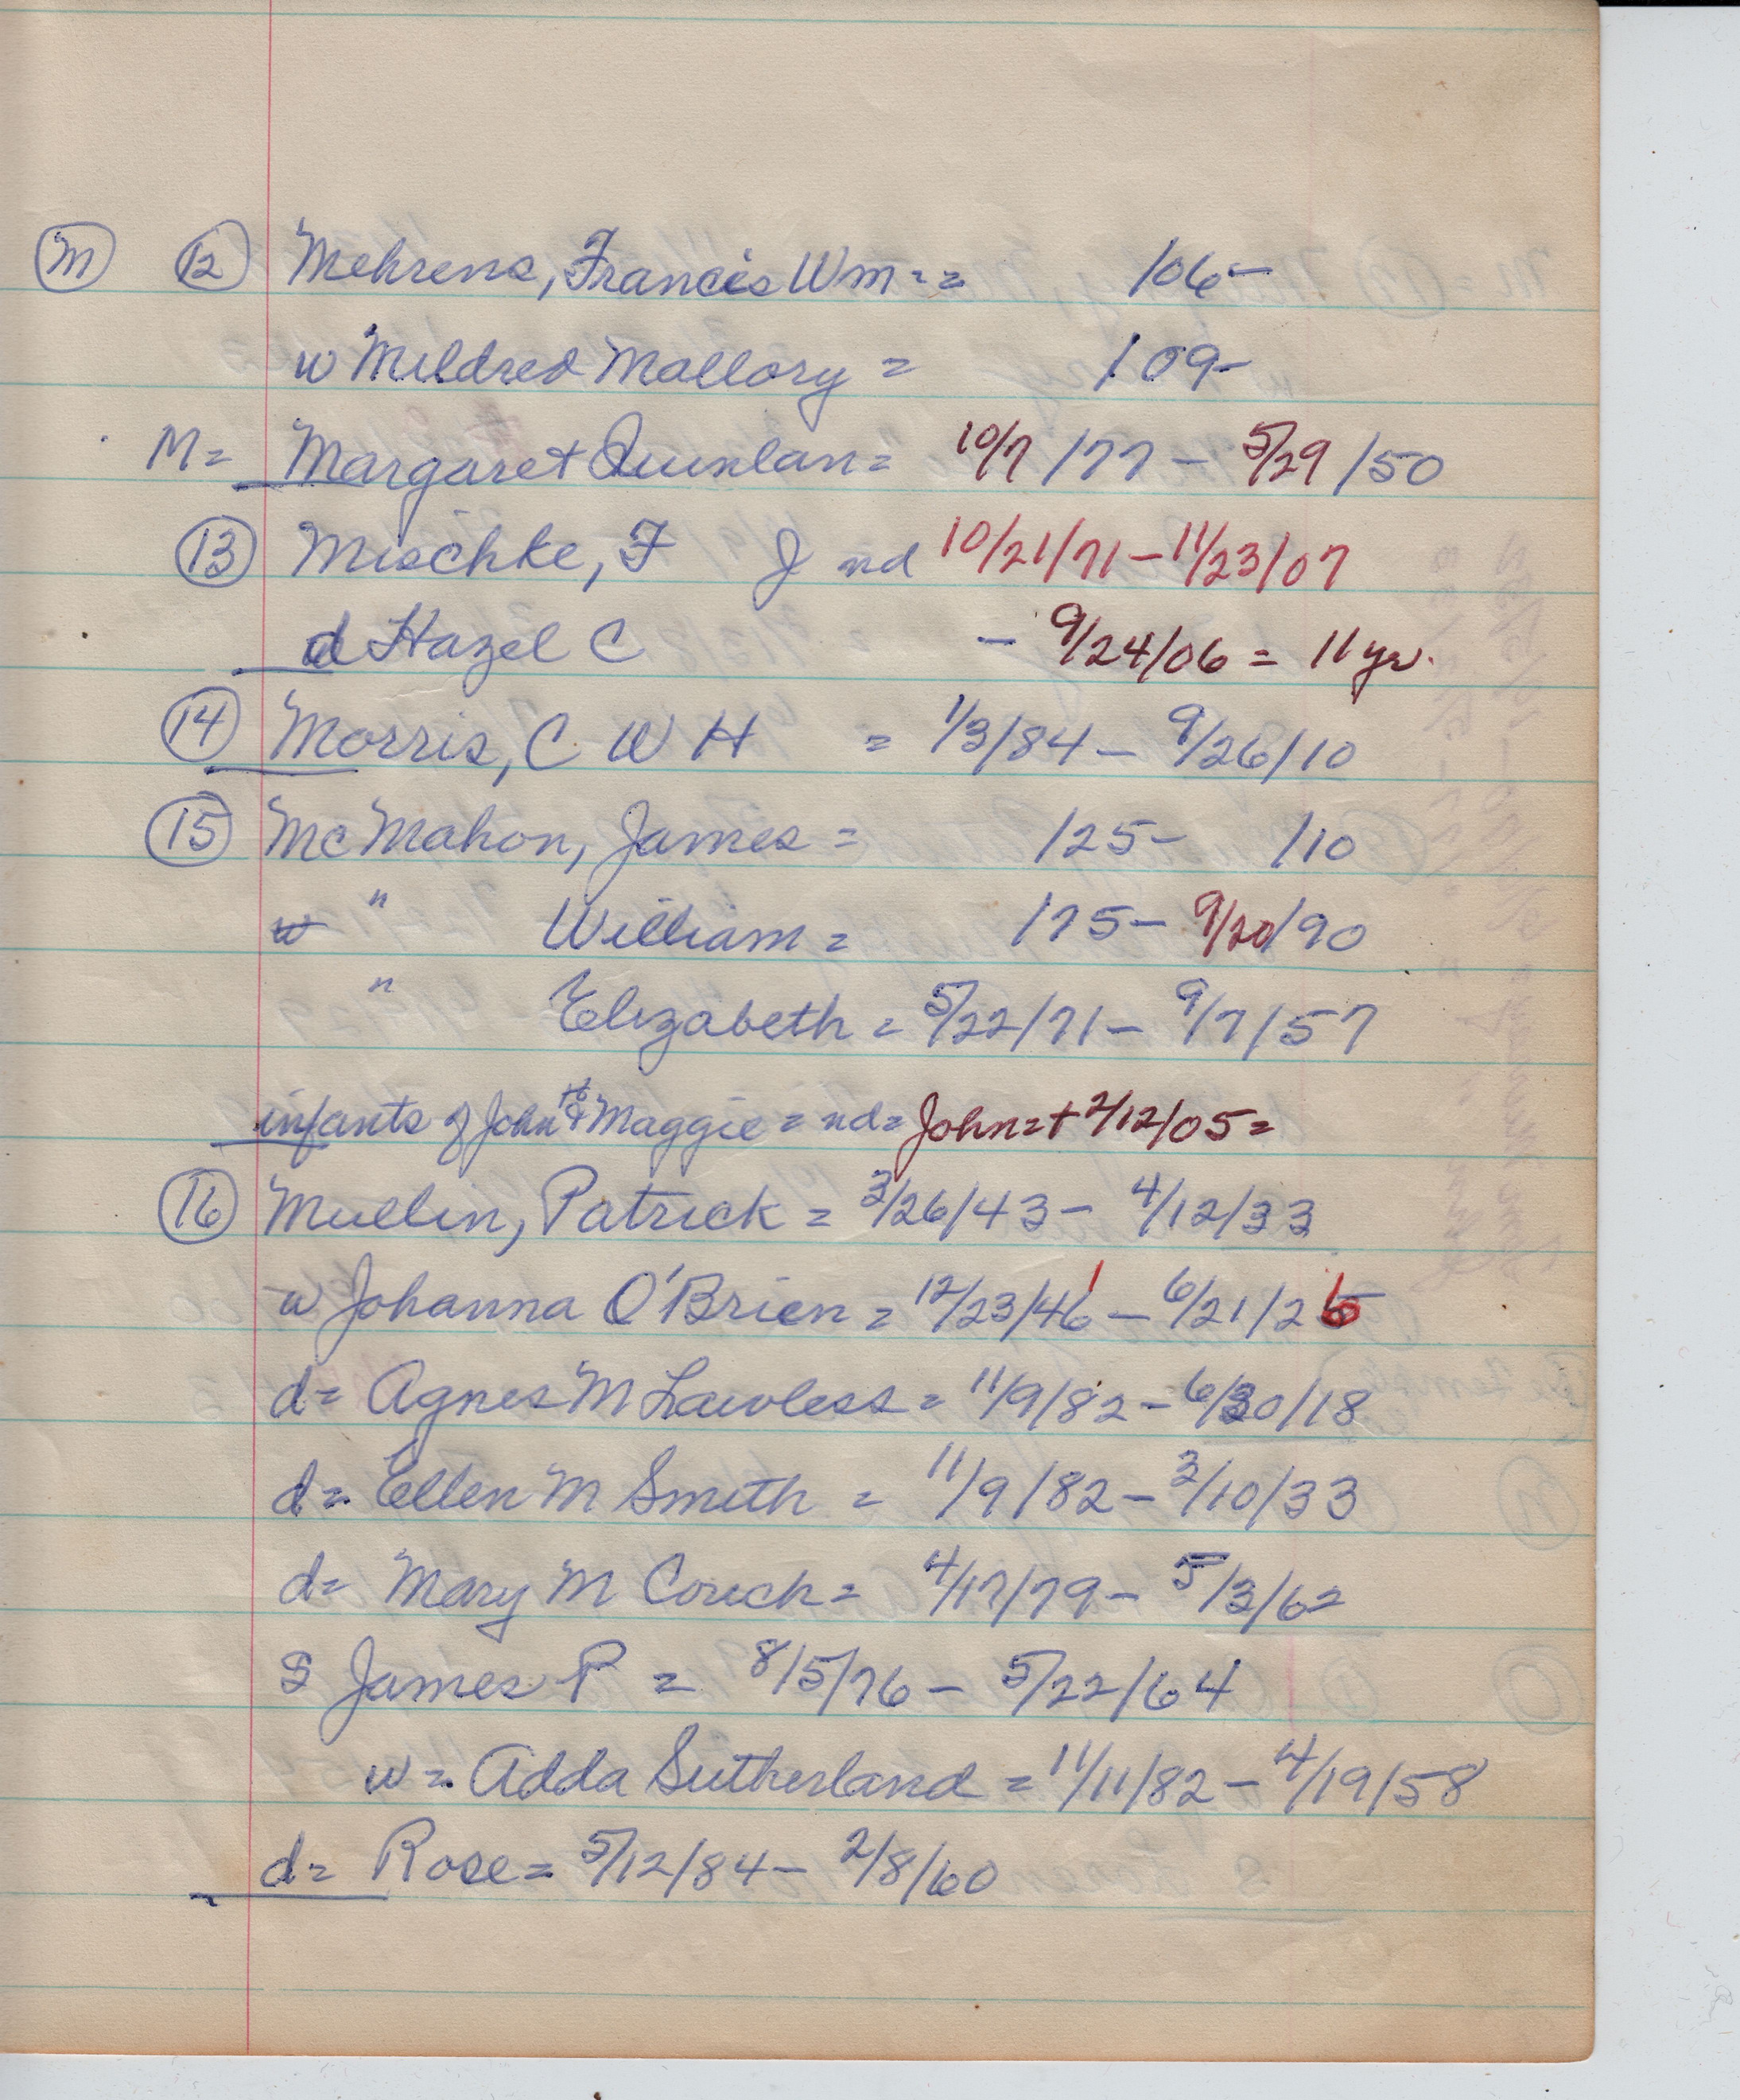 M 12 Mehrens, Francis Wm = = /06-
w Mildred Mallory = /09-
M = Margaret Quinlan = 10/7/77 - 5/29/50
13 Mischke, F J nd 10/21/71 - 11/23/07
d Hazel C - 9/24/06 = 11 yr.
14 Morris, C W H = 1/3/84 - 9/26/10
15 McMahon, James = /25- /10
w " William = /75- 9/20/90
" Elizabeth = 5/22/71 - 9/7/57
infants of John & Maggie = nd = John = + 2/12/05 =
16 Mullin, Patrick = 3/26/43 - 4/12/33
w Johanna O'Brien = 12/23/46 1 - 6/21/26
d = Agnes M Lawless = 11/9/82 - 6/30/18
d = Ellen M Smith = 11/9/82 - 3/10/33
d = Mary M Couch = 4/17/79 - 5/3/62
S James P = 8/5/76 - 5/22/64
w = Adda Sutherland = 11/11/82 - 4/19/58
d = Rose = 5/12/84 - 2/8/60